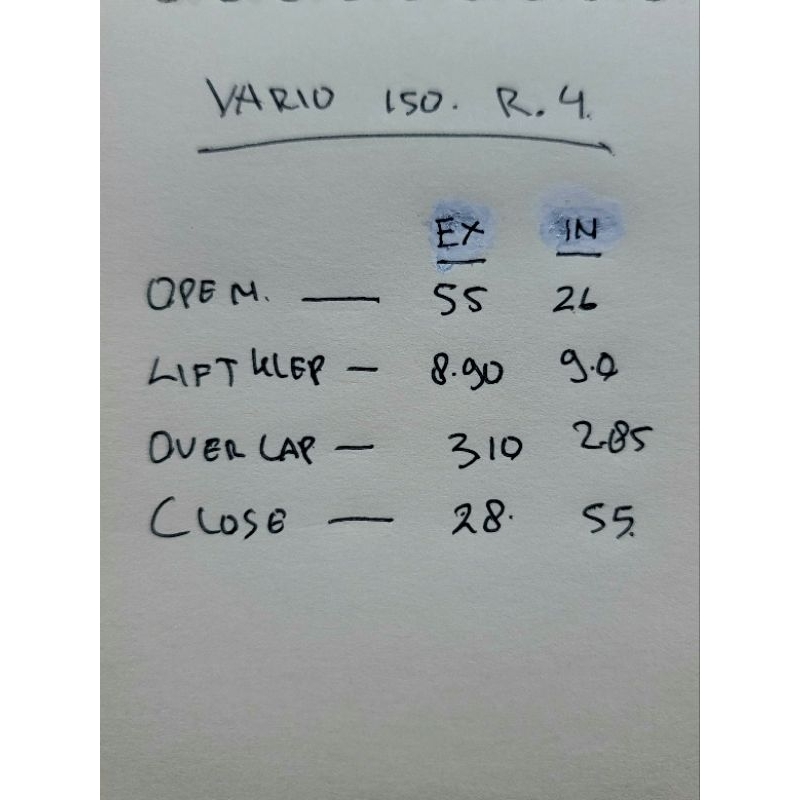 VARIO 150. R.4.
EX IN
OPEN. — 55 26
LIFT KLEP — 8.90 9.0
OVER LAP — 310 2.85
CLOSE — 28. 55.